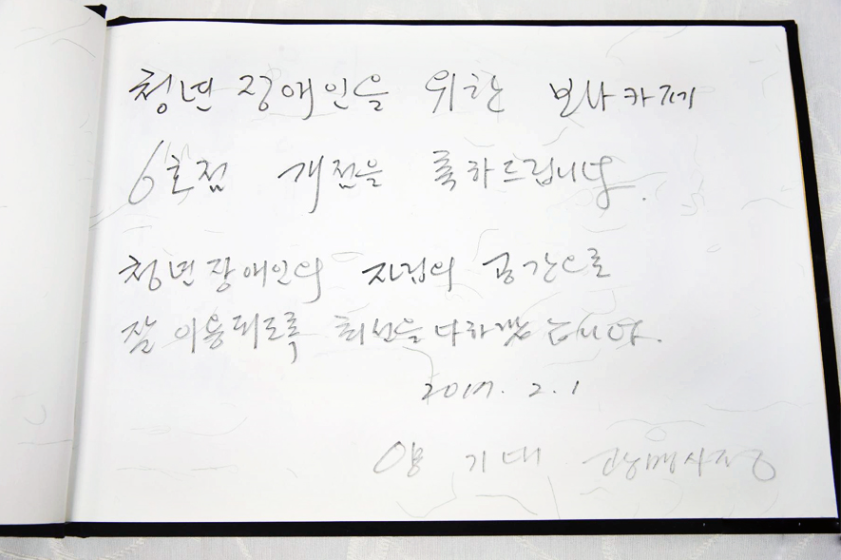 청년 장애인을 위한 보나카페
6호점 개점을 축하드립니다.
청년 장애인의 자립의 공간으로
잘 이용되도록 최선을 다하겠습니다.
2017. 2. 1
양 기대 광명시장